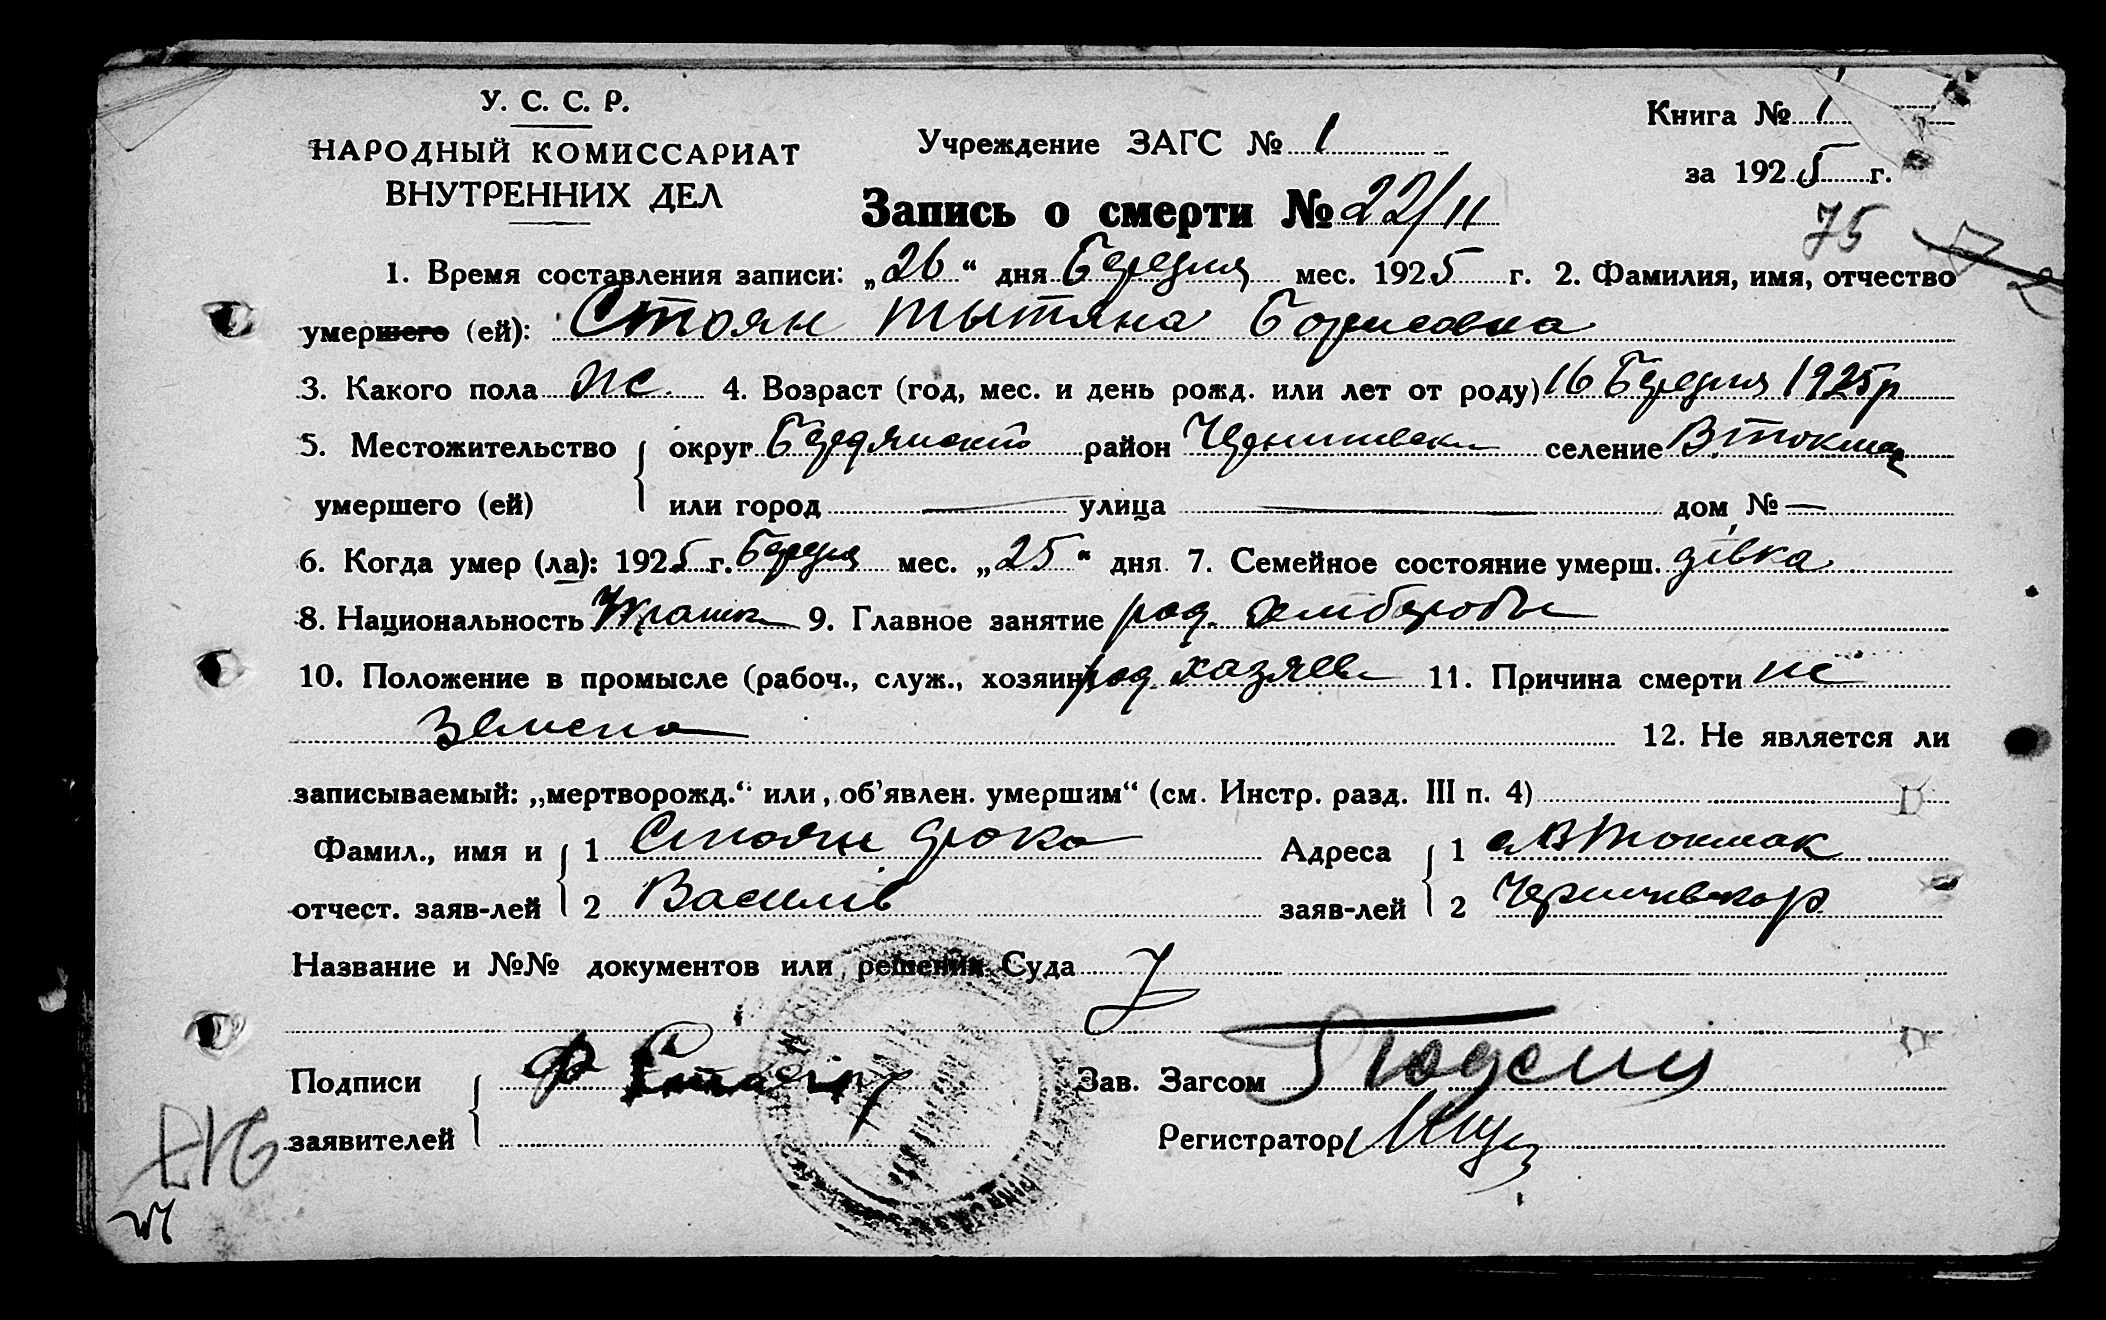 У. С. С. Р.
НАРОДНЫЙ КОМИССАРИАТ
ВНУТРЕННИХ ДЕЛ
Учреждение ЗАГС № 1
Книга № 1
за 1925 г.
Запись о смерти № 22/11
75
1. Время составления записи: „26“ дня Березня мес. 1925 г. 2. Фамилия, имя, отчество
умершего (ей): Стоян Тытяна Борисовна
3. Какого пола ж. 4. Возраст (год, мес. и день рожд. или лет от роду) 16 Березня 1925 р
5. Местожительство умершего (ей) округ Бердянский район Черниговск селение В. Токмак
или город — улица — дом № —
6. Когда умер (ла): 1925 г. Березня мес. „25“ дня 7. Семейное состояние умерш. дівка
8. Национальность Украинк 9. Главное занятие род. хлібороби
10. Положение в промысле (рабоч., служ., хозяин) род. хазяев 11. Причина смерти не
12. Не является ли
записываемый: „мертворожд.“ или „об'явлен. умершим“ (см. Инстр. разд. III п. 4)
Фамил., имя и отчест. заяв-лей 1 Стоян
2 Василів
Адреса заяв-лей 1 В Токмак
2
Название и №№ документов или решения Суда
Подписи заявителей
Зав. Загсом
Регистратор